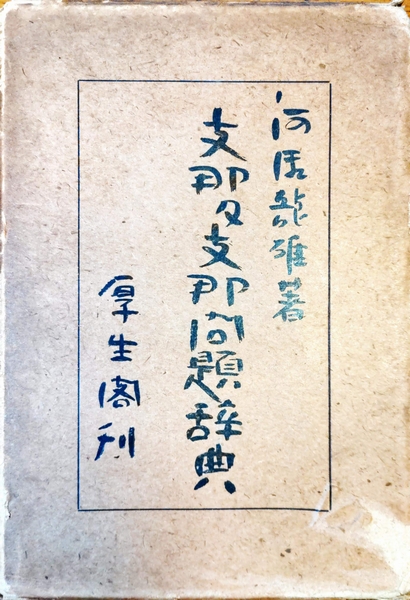 河龍雄著
支那及支那問題辞典
厚生閣刊